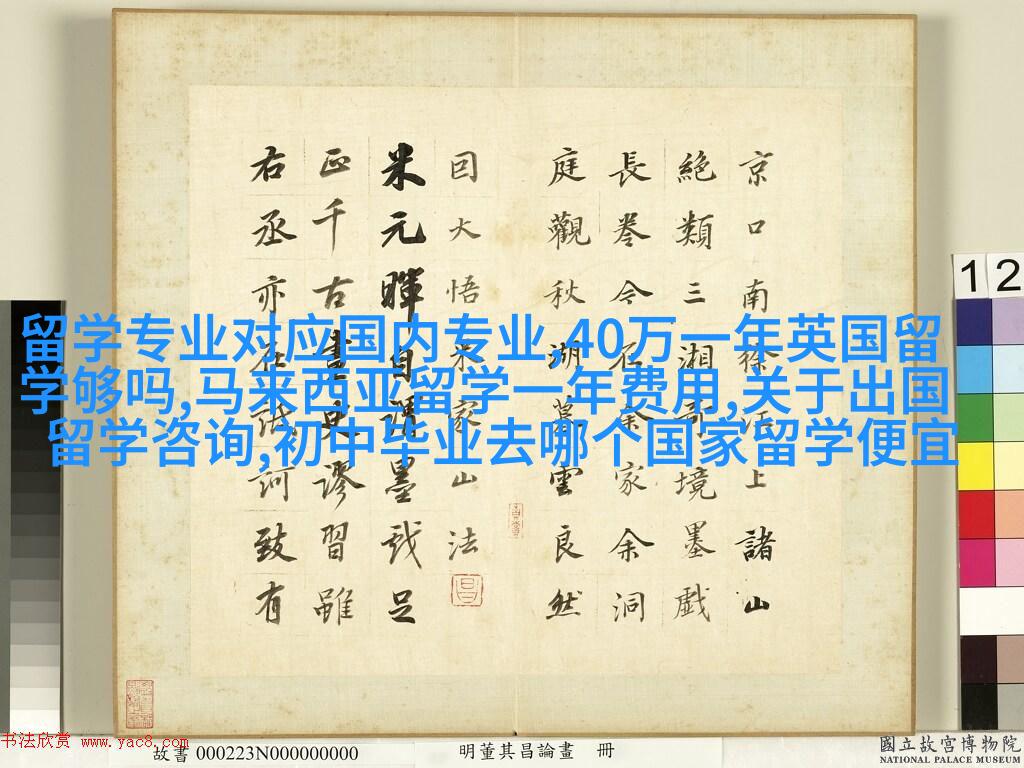 京口南徐江上諸山
絕類三湘奇境墨戲
長卷今在余家余洞
庭觀秋湖暮雲良然
因大悟米家山法
米元暉自謂墨戲足
正千古畫史謬習雖
右丞亦在詆訶致有
留学专业对应国内专业,40万一年英国留
学够吗,马来西亚留学一年费用,关于出国
留学咨询,初中毕业去哪个国家留学便宜
12
书法欣赏 www.yac8.com
故書 000223N000000000 明董其昌論畫 冊
國立故宮博物院
NATIONAL PALACE MUSEUM